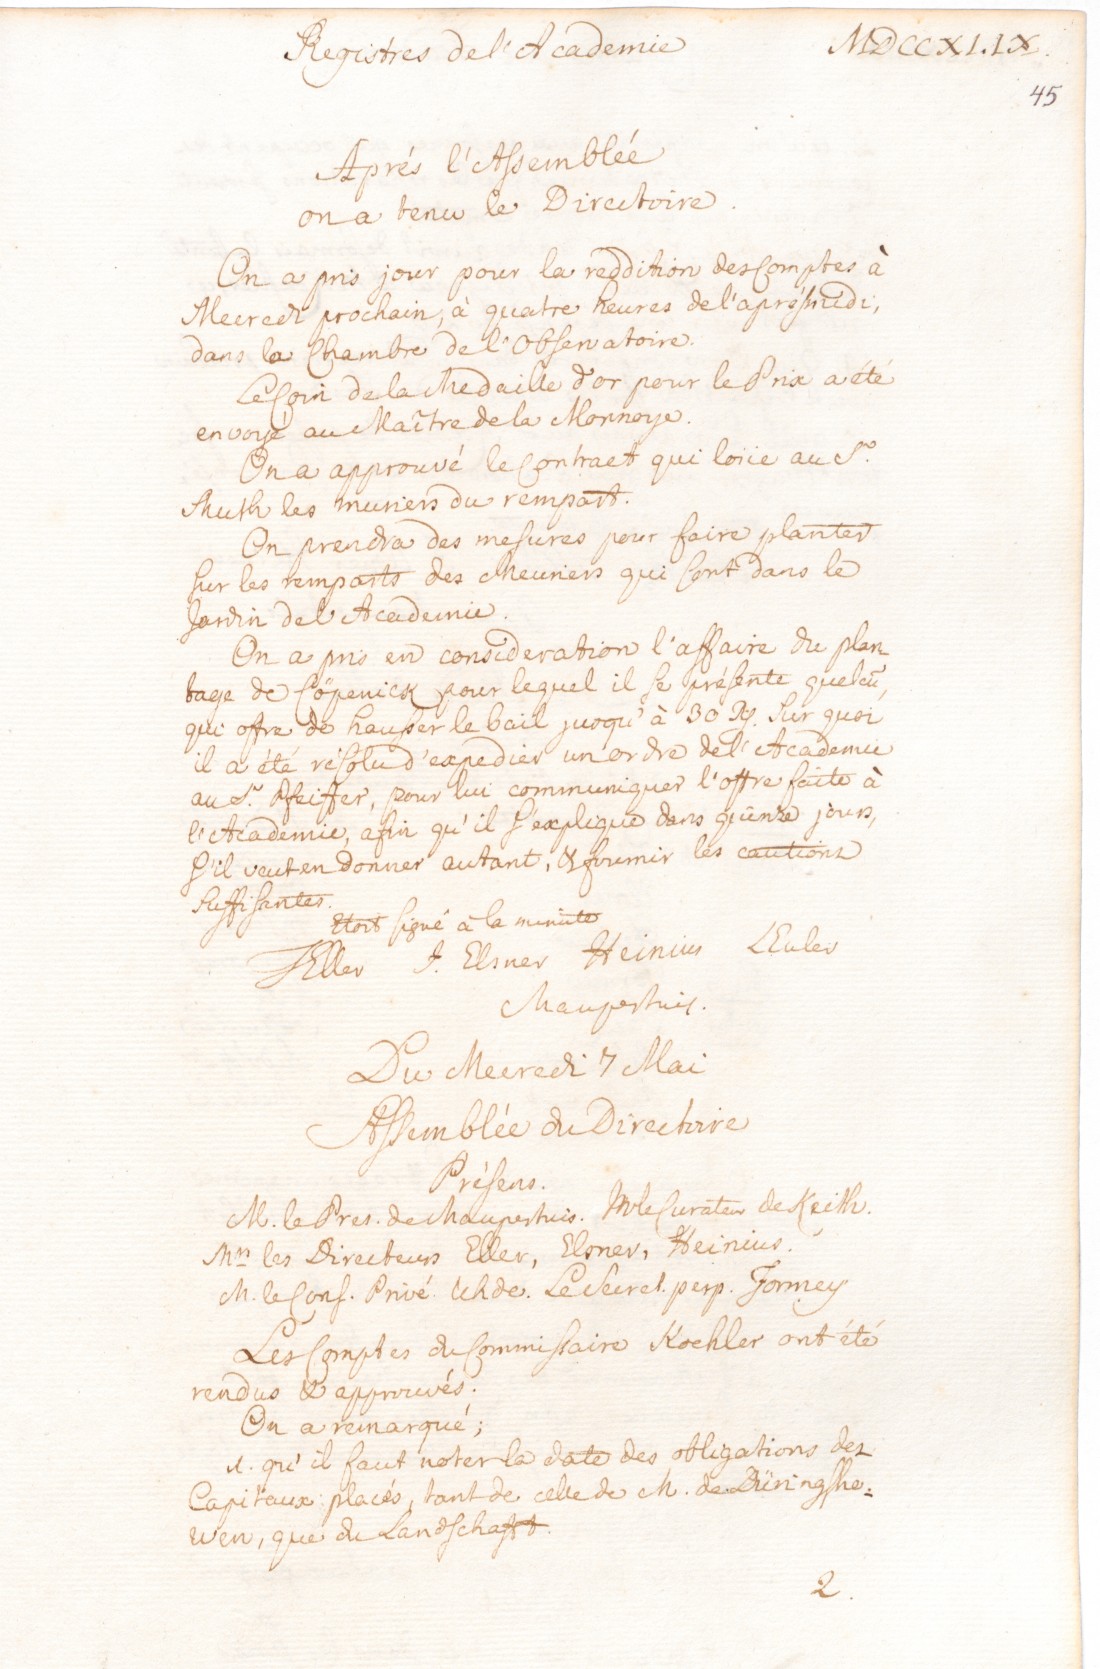 Registres de l'Academie MDCCXLIX.
45
Aprés l'Assemblée
on a tenu le Directoire.
On a pris jour pour la reddition des Comptes à
Mecredi prochain, à quatre heures de l'aprésmidi,
dans la Chambre de l'Observatoire.
Le Coin de la Medaille d'or pour le Prix a été
envoyé au Maître de la Monnoye.
On a approuvé le Contract qui loüe au Sr.
Muth les muriers du rempart.
On prendra des mesures pour faire planter
sur les remparts des Meuriers qui sont dans le
Jardin de l'Academie.
On a pris en consideration l'affaire du plan-
tage de Cöpenick pour lequel il se présente quelcu̅,
qui offre de hausser le bail jusqu'à 30 Sur quoi
il a été résolu d'expedier un ordre de l'Academie
au Sr. Pfeiffer, pour lui communiquer l'offre faite à
l'Academie, afin qu'il s'explique dans quinze jours,
S'il veut en donner autant, & fournir les cautions
suffisantes.
Etoit signé à la minute
JEller J. Elsner Heinius LEuler
Maupertuis.
Du Mecredi 7 Mai
Assemblée du Directoire
Présens.
M. le Pres. de Maupertuis. M le Curateur de Keith.
Mrs les Directeurs Eller, Elsner, Heinius.
M. le Cons. Privé Uhde. Le Secret. perp. Formey
Les Comptes du Commissaire Koehler ont été
rendus & approuvés.
On a remarqué;
1. qu'il faut noter la date des obligations des
Capitaux placés, tant de celle de M. de Düringshe-
wen, que du Landschafft.
2.